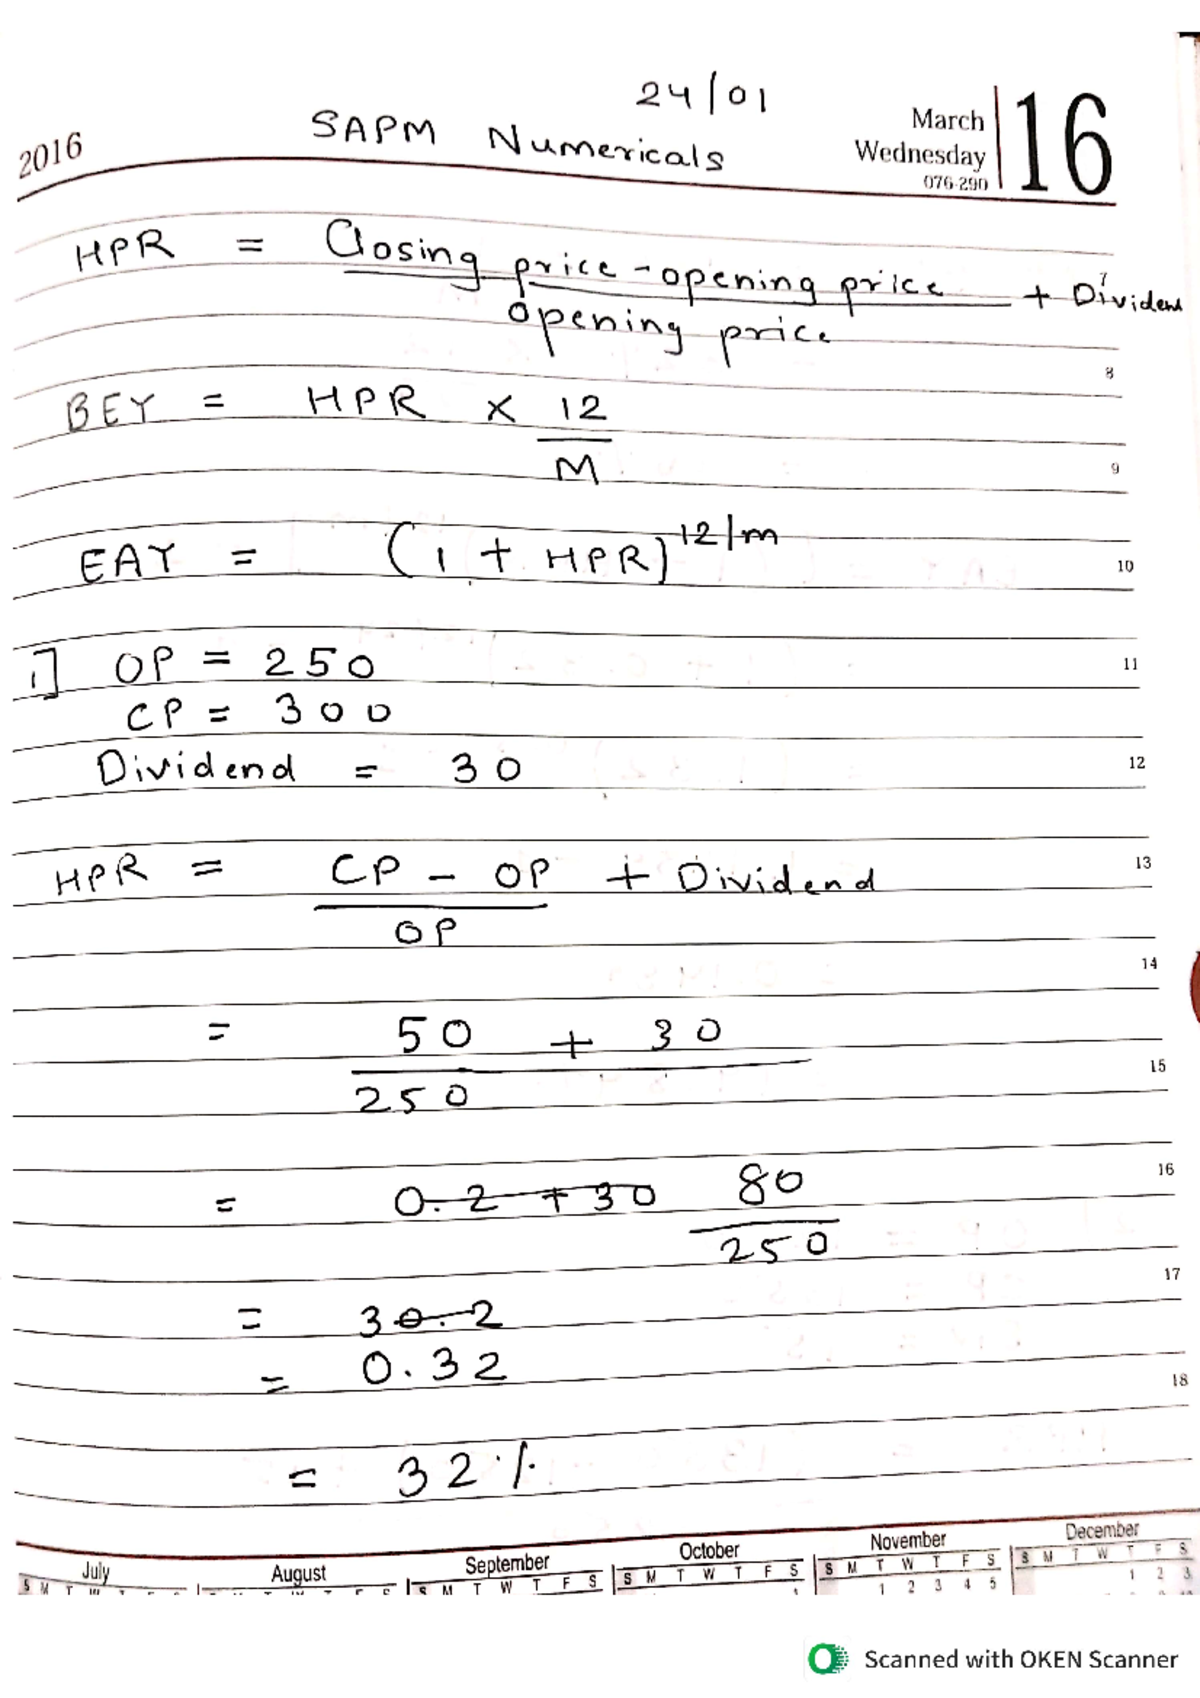 24/01
2016 SAPM Numericals March 16
Wednesday
076-290
HPR = Closing price - opening price + Dividend
opening price
7
8
BEY = HPR × 12
M
9
EAY = (1 + HPR)^12/m
10
1] OP = 250
11
CP = 300
Dividend = 30
12
HPR = CP - OP + Dividend
13
OP
14
= 50 + 30
250
15
= 0.2 + 30 80
16
250
17
= 30.2
= 0.32
18
= 32%
July August September October November December
S M T W S M T W T F S S M T W T F S S M T W T F S S M T W T F S
1 1 2 3 4 5 1 2 3
Scanned with OKEN Scanner